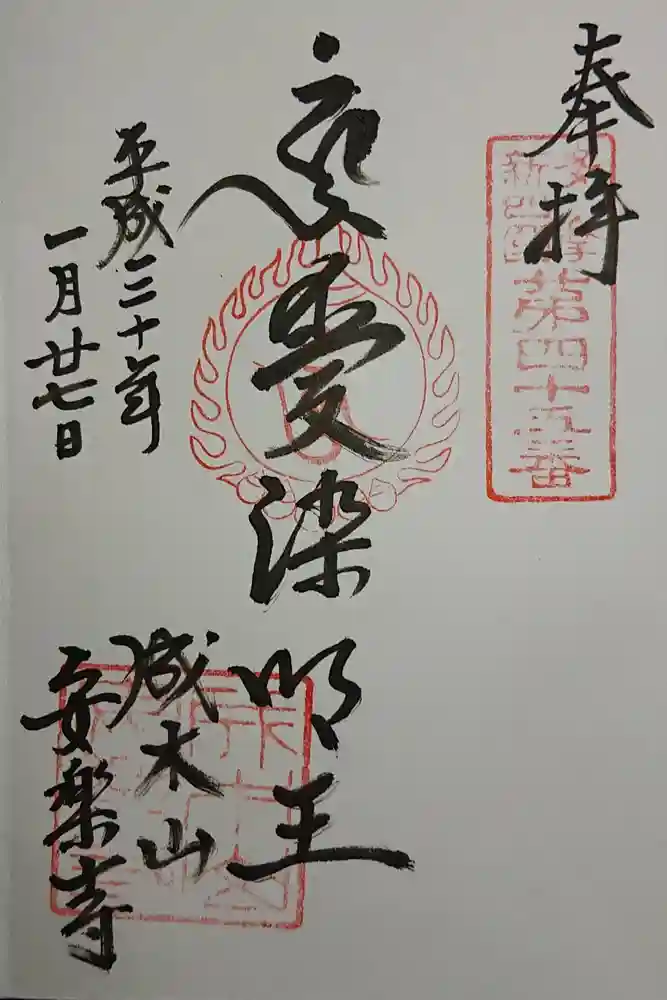 奉拝
多摩
新四国
第四十五番
愛染明王
平成三十年
一月廿七日
成木山
安楽寺